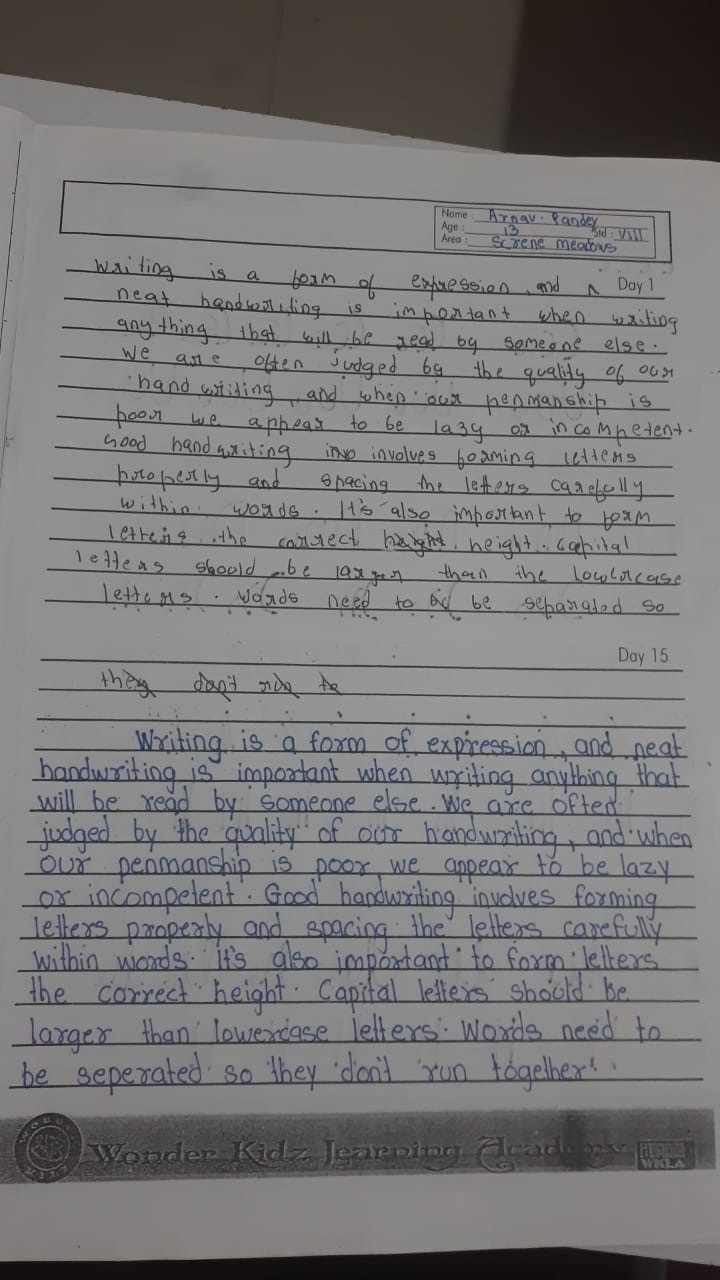 Name : Arnav. Pandey
Age : 13 Std : VIII
Area : Screne meadows
Day 1
writing is a form of expression, and a
neat handwriting is important when writing
anything that will be read by someone else.
We are often judged by the quality of our
hand writing, and when our penmanship is
poor we appear to be lazy or incompetent.
Good handwriting involves forming letters
properly and spacing the letters carefully
within words. It's also important to form
letters the correct height. height. capital
letters should be larger than the lowercase
letters. words need to be separated so
Day 15
they don't
Writing is a form of expression, and neat
handwriting is important when writing anything that
will be read by someone else. We are often
judged by the quality of our handwriting, and when
our penmanship is poor we appear to be lazy
or incompetent. Good handwriting involves forming
letters properly and spacing the letters carefully
within words. It's also important to form letters
the correct height. Capital letters should be
larger than lowercase letters. Words need to
be seperated so they don't run together.
Wonder Kidz Learning Academy
WKLA